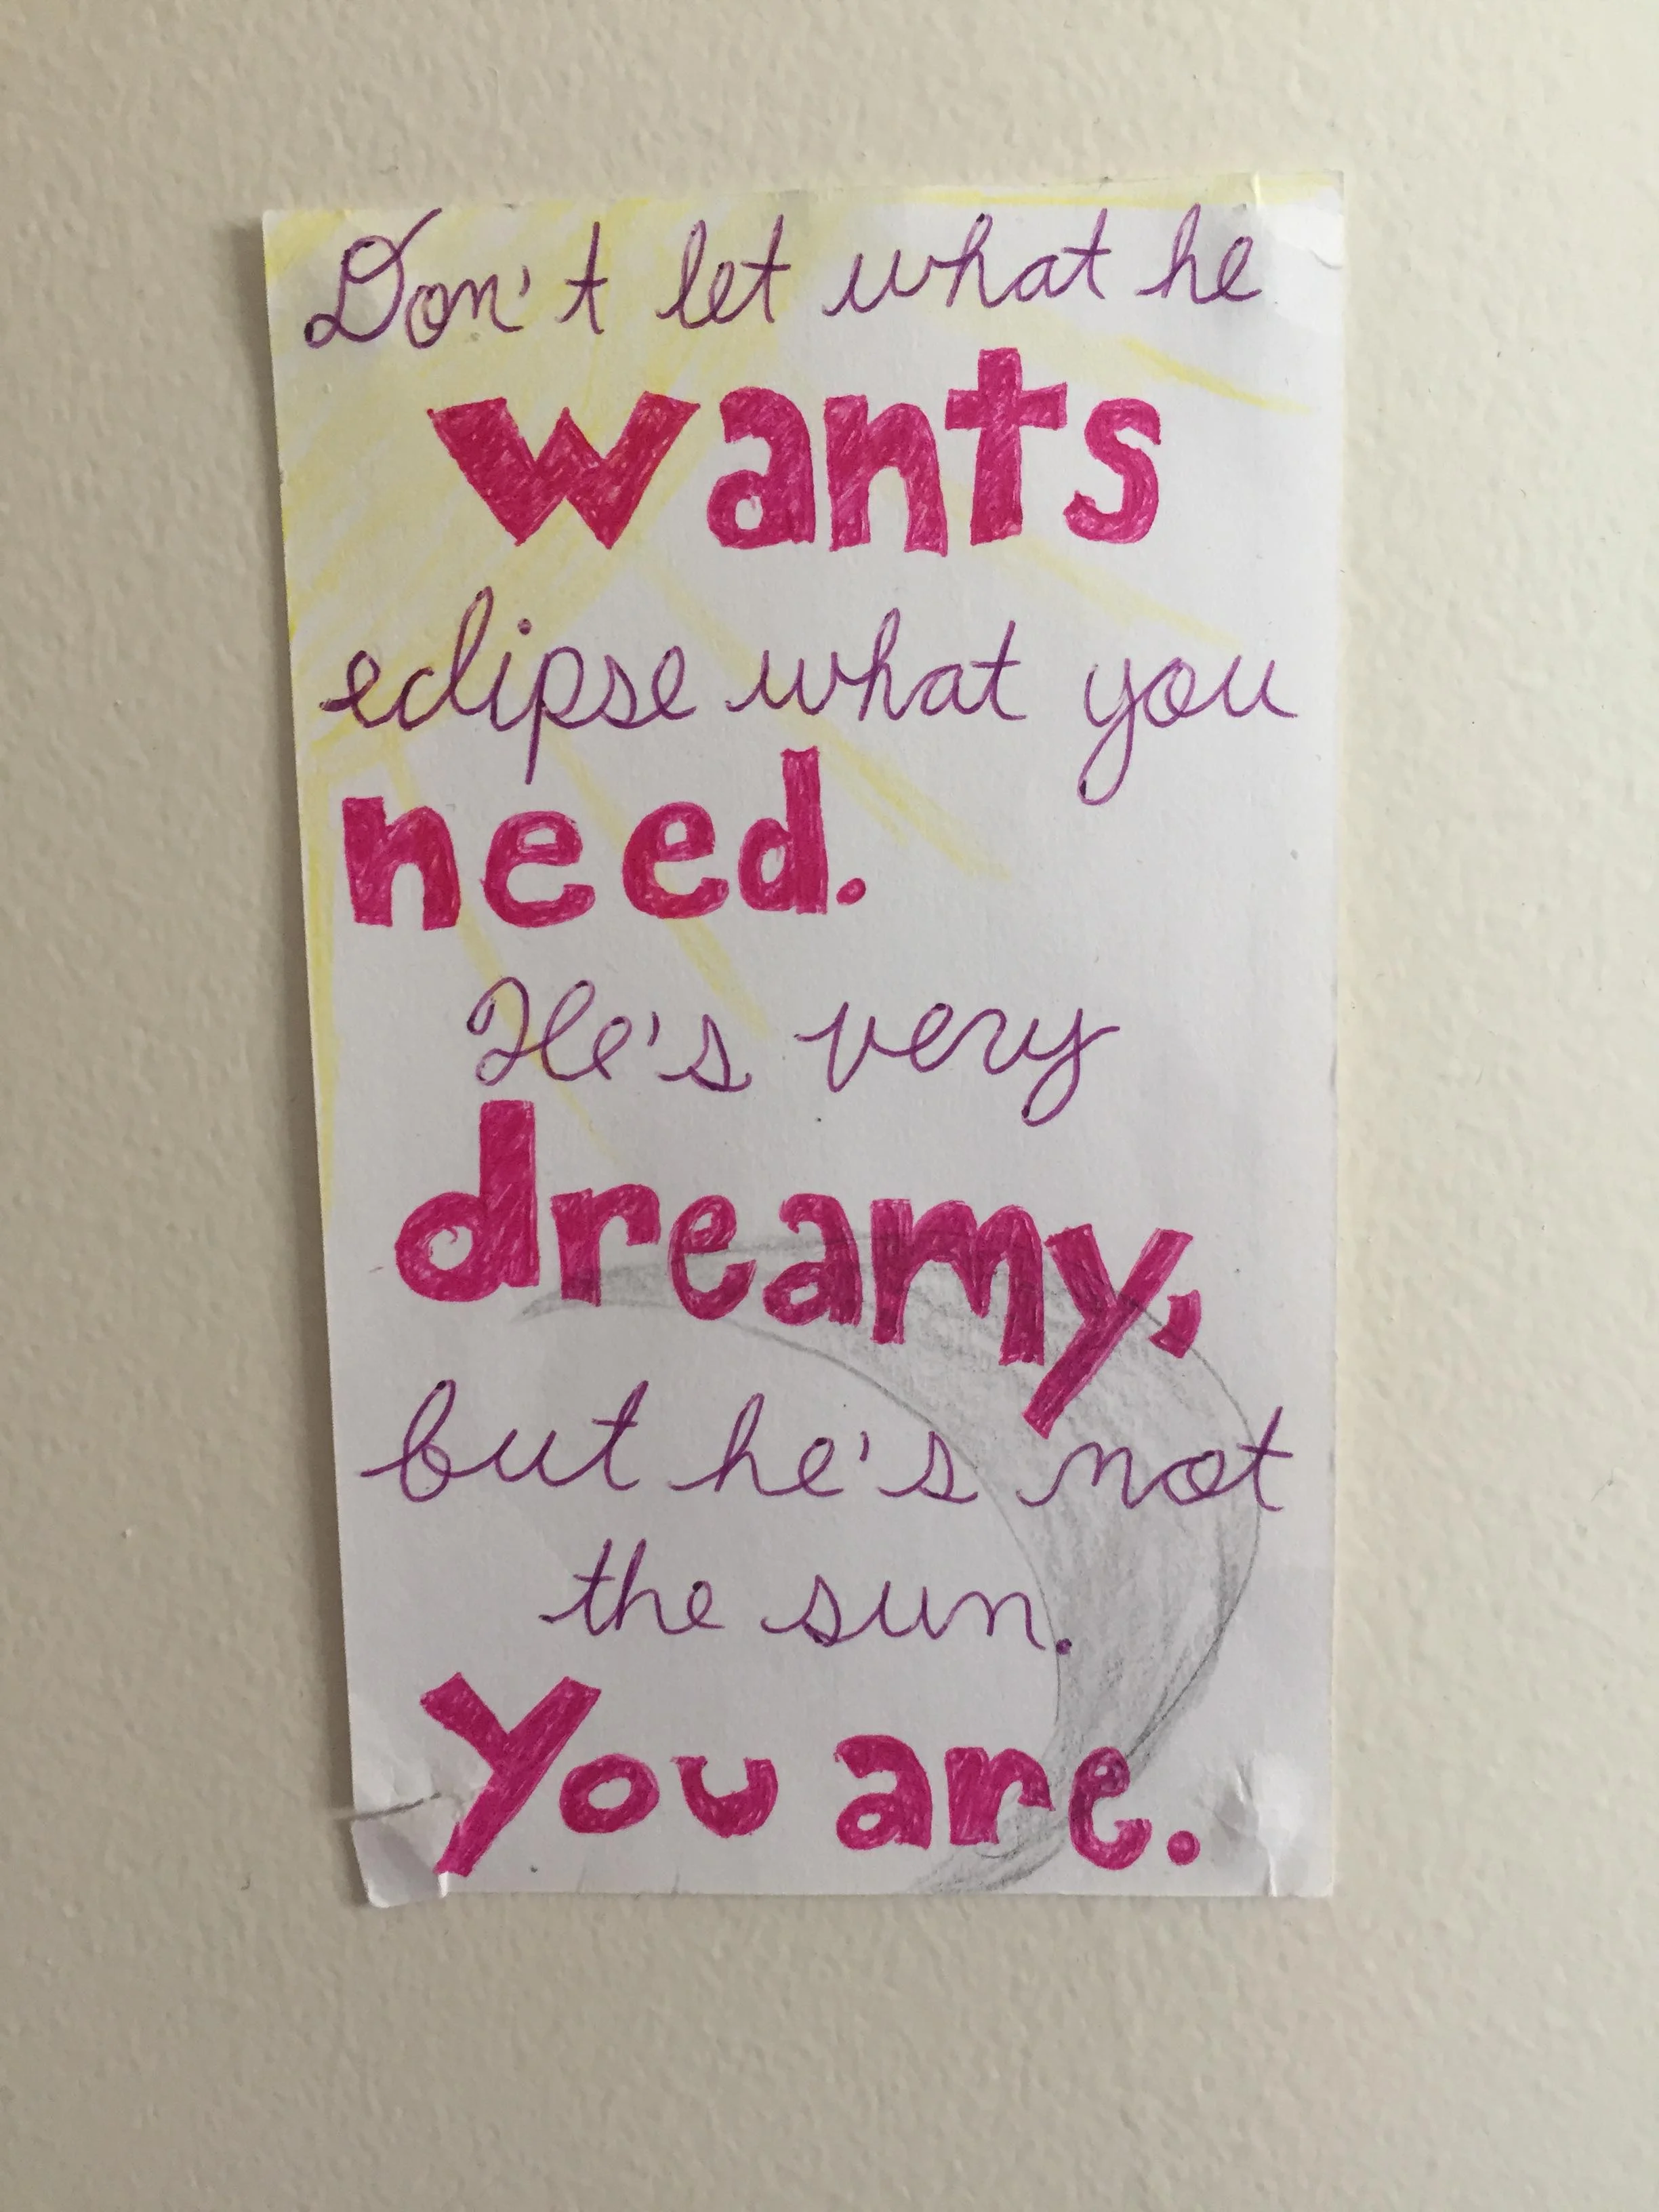 Don't let what he
wants
eclipse what you
need.
He's very
dreamy,
but he's not
the sun.
You are.